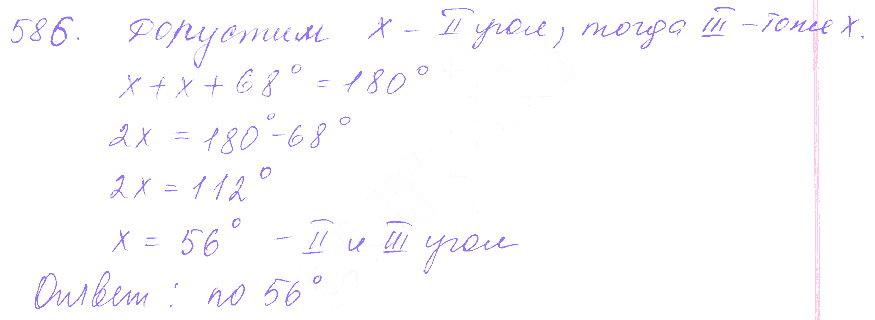 586. Допустим x - II угол, тогда III - тоже x.
x + x + 68° = 180°
2x = 180° - 68°
2x = 112°
x = 56° - II и III угол
Ответ: по 56°